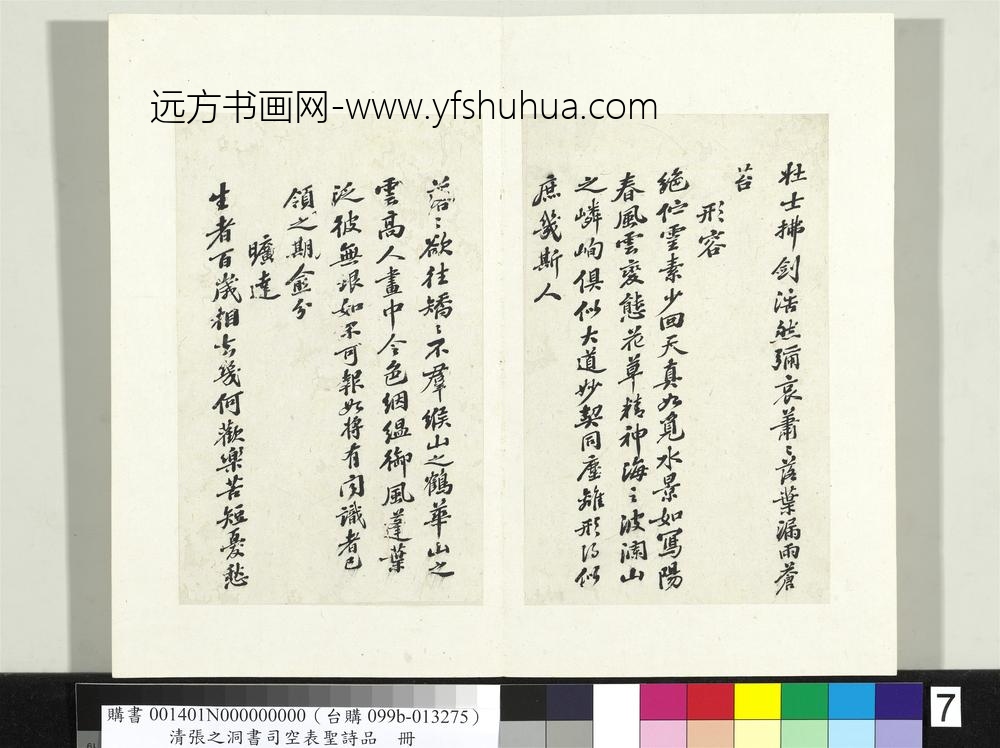 远方书画网-www.yfshuhua.com
壮士拂劍浩然彌哀蕭〻落葉漏雨蒼
苔
形容
絕伫靈素少回天真如覓水景如寫陽
春風雲變態花草精神海之波瀾山
之嶙峋俱似大道妙契同塵離形得似
庶幾斯人
落〻欲往矯〻不羣緱山之鶴華山之
雲高人畫中令色絪緼御風蓬葉
泛彼無垠如不可執如將有聞識者已
領之期愈分
曠達
生者百歲相去幾何歡樂苦短憂愁
購書 001401N000000000（台購 099b-013275）
清張之洞書司空表聖詩品 冊
7